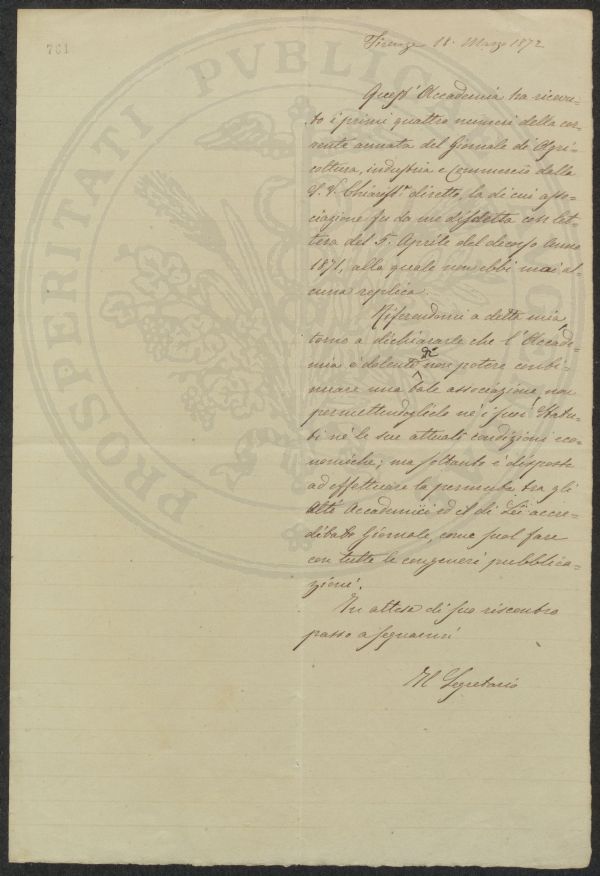 761
Firenze 18. Marzo 1872
Quest' Accademia ha ricevu-
to i primi quattro numeri della cor-
rente annata del Giornale di Agri-
coltura, industria e Commercio della
S. V. Chiariss.ª diretto, la di cui asso-
ciazione fu da me disdetta con let-
tera del 5. Aprile del decorso Anno
1871, alla quale non ebbi mai al-
cuna replica.
Riferendomi a detta mia
torno a dichiararle che l'Accade-
mia è dolente di non potere conti-
nuare una tale associazione, non
permettendoglielo nè i suoi Statu-
ti nè le sue attuali condizioni eco-
nomiche; ma soltanto è disposta
ad effettuare la permuta tra gli
Atti Accademici ed il di Lei accre-
ditato Giornale, come suol fare
con tutte le congeneri pubblica-
zioni.
In attesa di suo riscontro
passo a segnarmi
Il Segretario
PROSPERITATI PVBLICAE